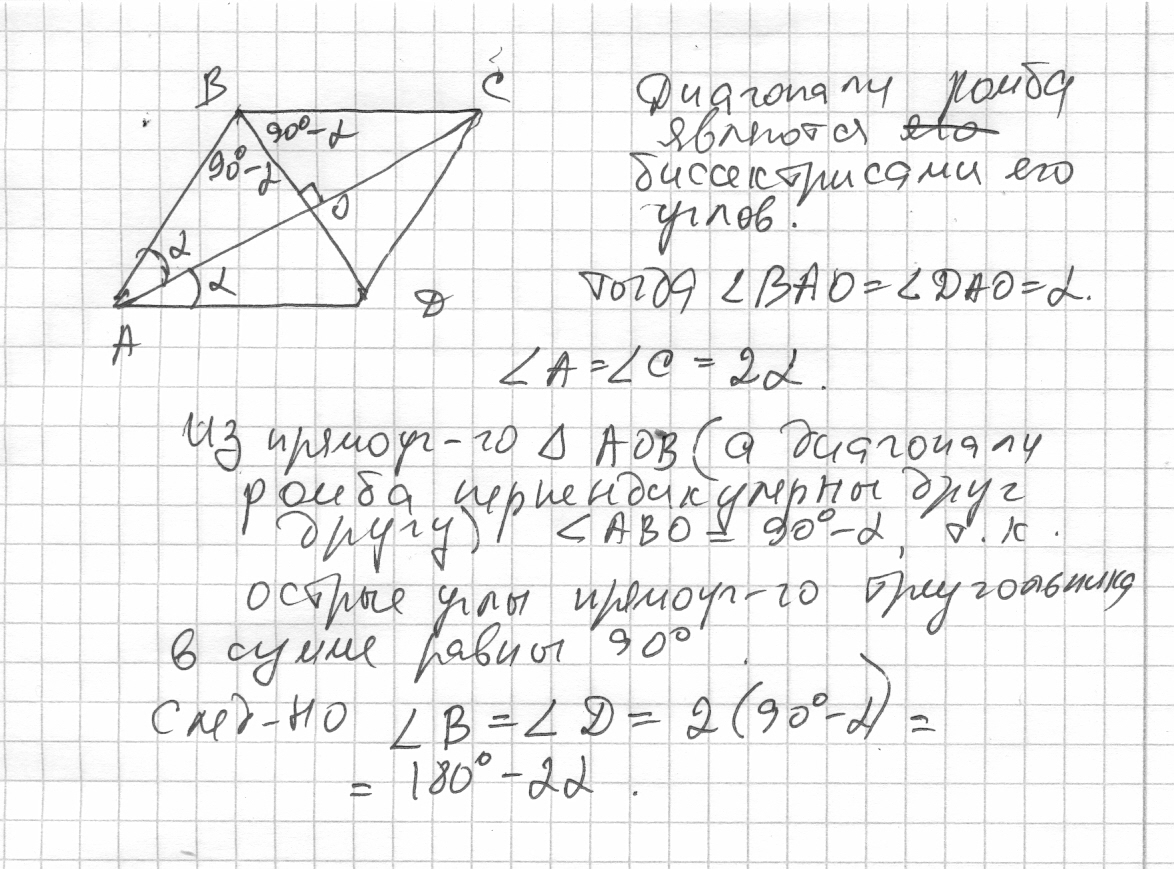 B
C
90°-α
90°-α
O
α
α
A
D
Диагонали ромба
являются его
биссектрисами его
углов.
Тогда ∠BAO=∠DAO=α.
∠A=∠C=2α.
Из прямоуг-го Δ AOB (а диагонали
ромба перпендикулярны друг
другу) ∠ABO = 90°-α, т.к.
острые углы прямоуг-го треугольника
в сумме равны 90°.
След-но ∠B=∠D= 2(90°-α)=
= 180°-2α.